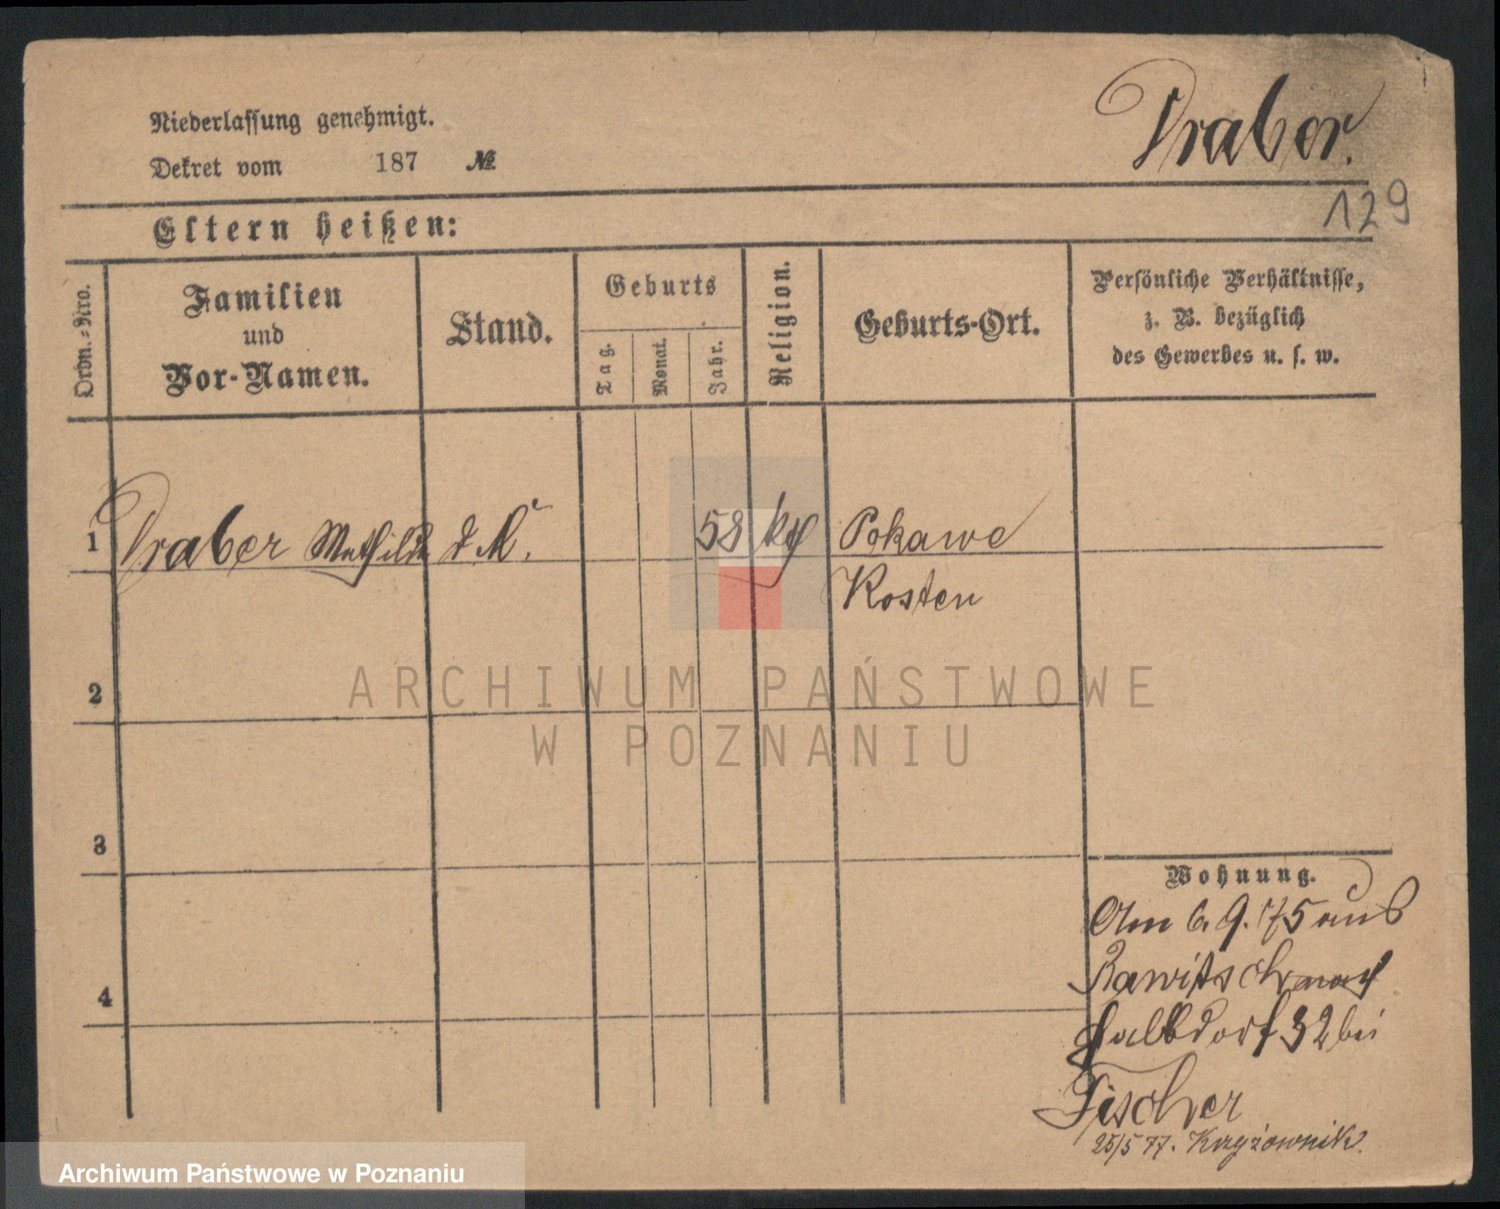 Niederlassung genehmigt.
Dekret vom 187 №
Draber.
129
Eltern heißen:
Ordn.-Nro.
Familien
und
Vor-Namen.
Stand.
Geburts
Tag.
Monat.
Jahr.
Religion.
Geburts-Ort.
Persönliche Verhältnisse,
z. B. bezüglich
des Gewerbes u. s. w.
1 Draber Mathilde d. M. 58 kth Pokawe
Kosten
2
3
4
Wohnung.
Am 6.9.75 aus
Rawitsch nach
Halbdorf 32 bei
Fischer
25/5 77. Krzyżownik.
ARCHIWUM PAŃSTWOWE
W POZNANIU
Archiwum Państwowe w Poznaniu